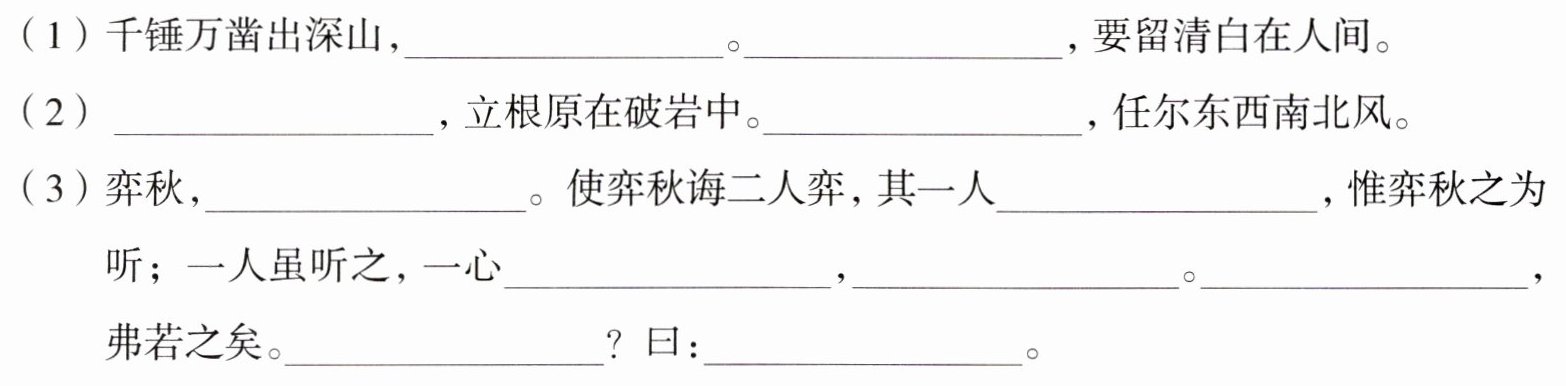 （1）千锤万凿出深山，________。________，要留清白在人间。
（2）________，立根原在破岩中。________，任尔东西南北风。
（3）弈秋，________。使弈秋诲二人弈，其一人________，惟弈秋之为
听；一人虽听之，一心________，________。________，
弗若之矣。________？曰：________。